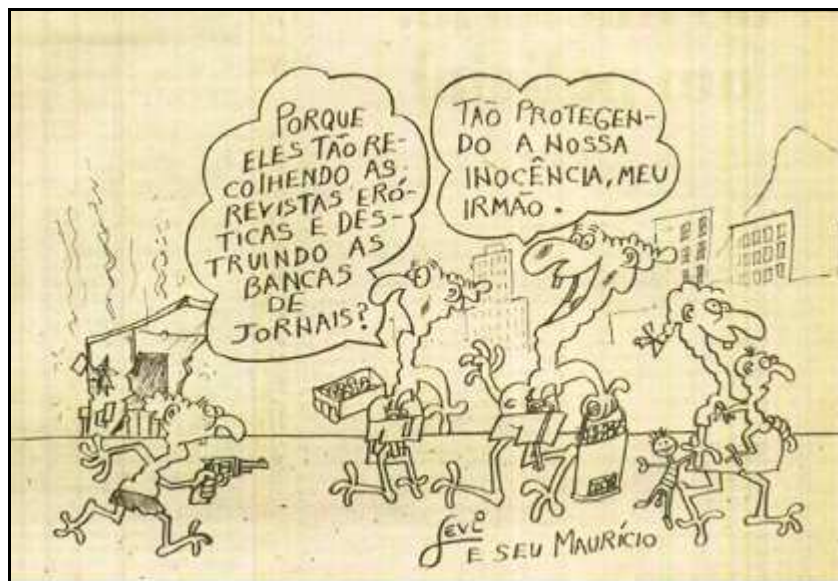 PORQUE
ELES TÃO RE-
COLHENDO AS
REVISTAS ERÓ-
TICAS E DES-
TRUINDO AS
BANCAS
DE
JORNAIS?
TÃO PROTEGEN-
DO A NOSSA
INOCÊNCIA, MEU
IRMÃO.
E SEU MAURÍCIO